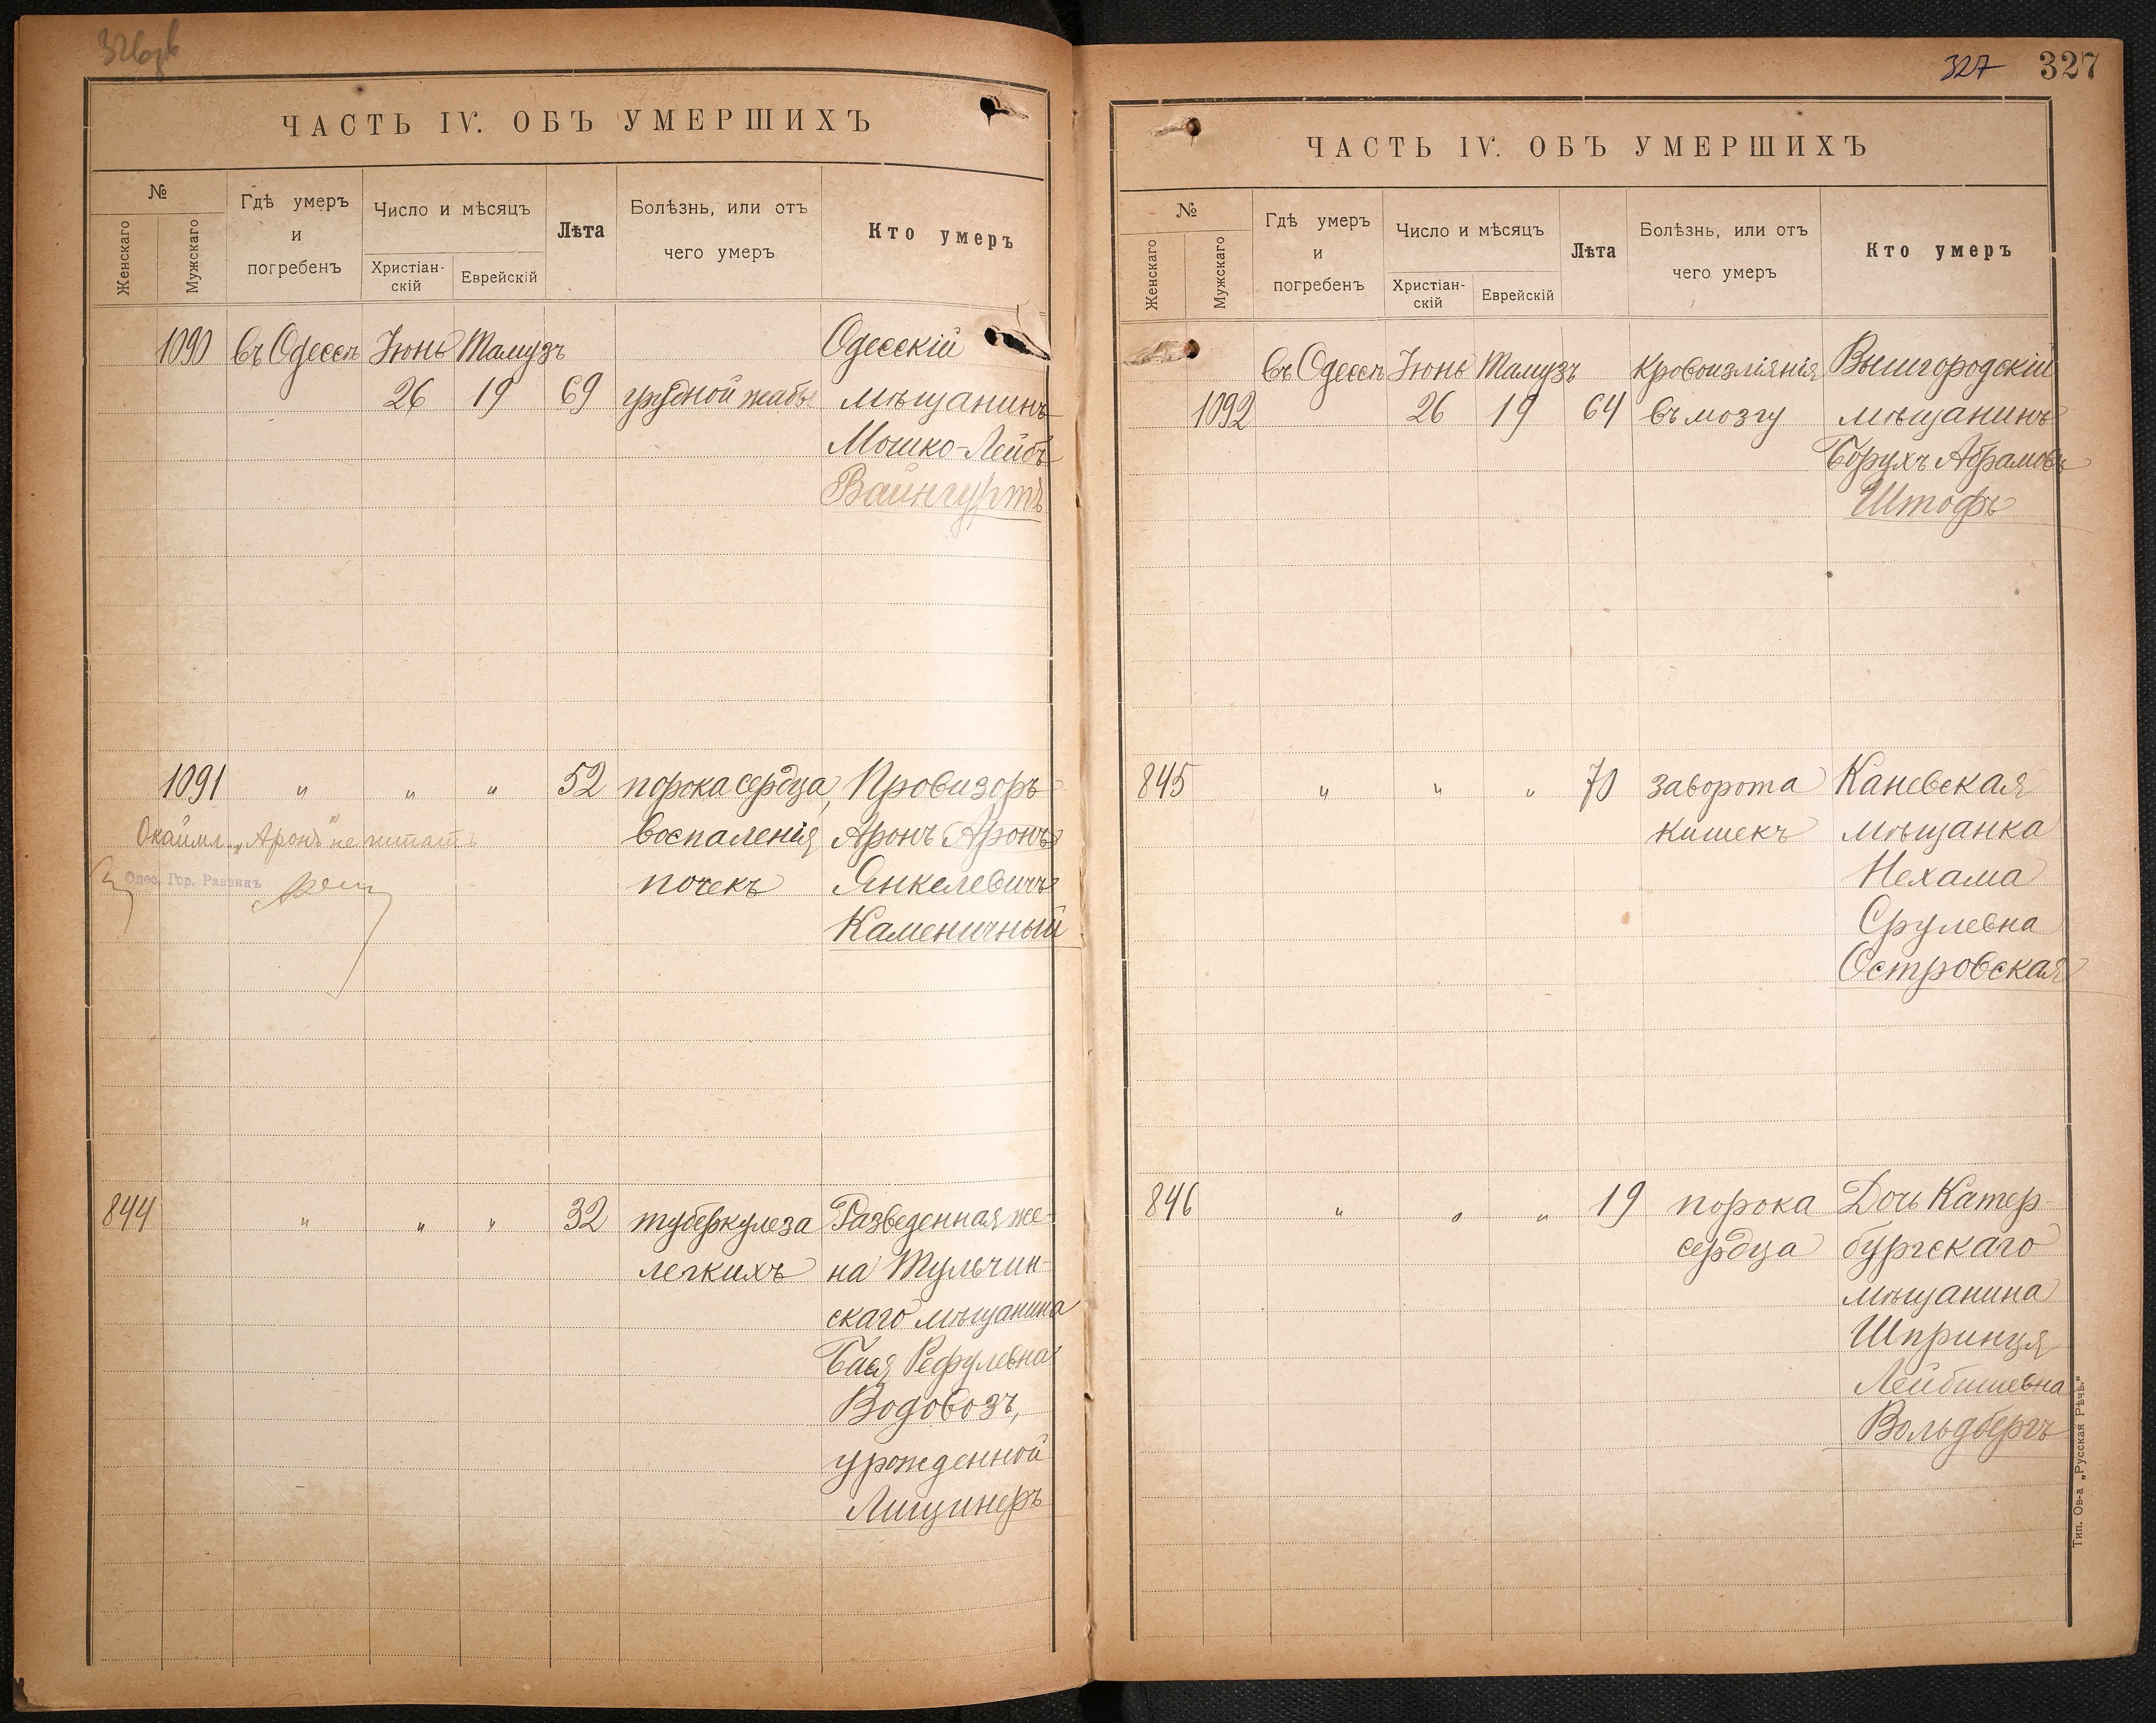 ЧАСТЬ IV. ОБЪ УМЕРШИХЪ
№
Женскаго
Мужскаго
Гдѣ умеръ
и
погребенъ
Число и мѣсяцъ
Христіан-
скій
Еврейскій
Лѣта
Болѣзнь, или отъ
чего умеръ
Кто умеръ
1090 въ Одессѣ Іюнь Тамузъ Одесскій
26 19 69 грудной жабы мѣщанинъ
Мошко-Лейбъ
Вайнгуртъ
1091 " " " 52 порока сердца, Провизоръ
"Аронъ" не читать воспаленія Аронъ Аронъ
Одес. Гор. Раввинъ почекъ Янкелевичъ
Каменичный
844 " " " 32 туберкулеза Разведенная же-
легкихъ на Тульчин-
скаго мѣщанина
Бася Рефулевна
Водовозъ,
урожденной
Лищинеръ
327 327
ЧАСТЬ IV. ОБЪ УМЕРШИХЪ
№
Женскаго
Мужскаго
Гдѣ умеръ
и
погребенъ
Число и мѣсяцъ
Христіан-
скій
Еврейскій
Лѣта
Болѣзнь, или отъ
чего умеръ
Кто умеръ
въ Одессѣ Іюнь Тамузъ Кровоизліянія Вышгородскій
1092 26 19 64 въ мозгу мѣщанинъ
Борухъ Абрамовъ
Штофъ
845 " " " 70 заворота Каневская
кишекъ мѣщанка
Нехама
Срулевна
Островская
846 " " " 19 порока Дочь Катер-
сердца бургскаго
мѣщанина
Шпринця
Лейбишевна
Вольдбергъ
Тип. Ов-а „Русская Рѣчь."